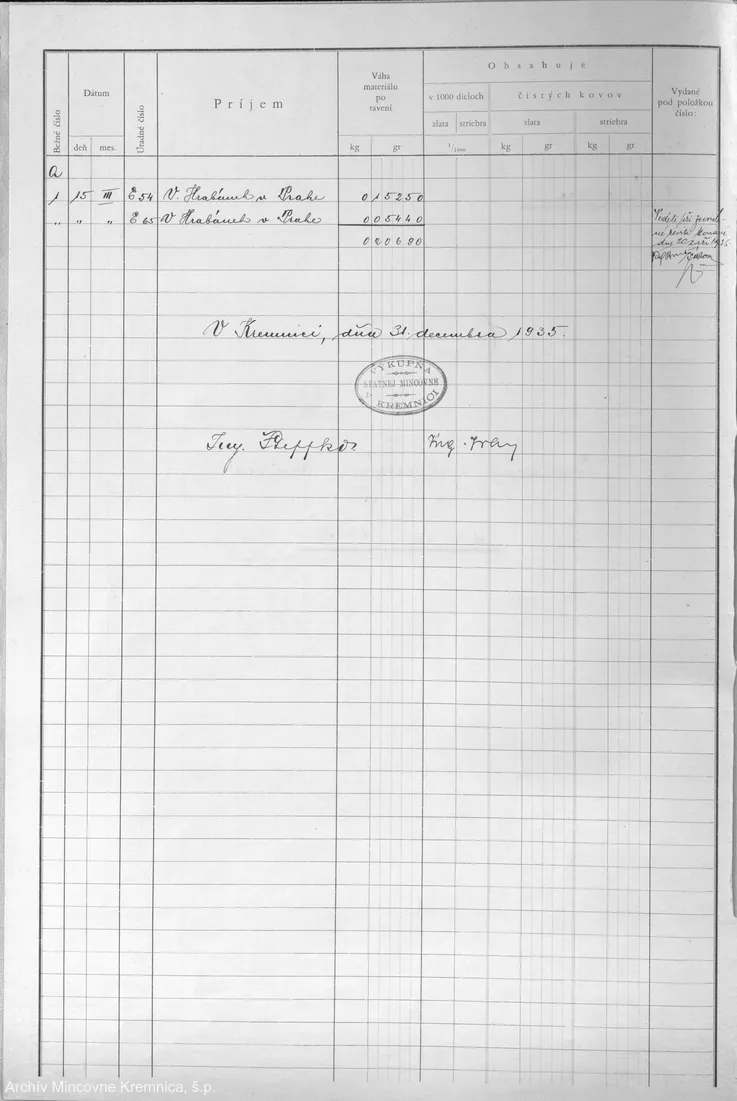 Bežné číslo
Dátum
deň mes.
Úradné číslo
Príjem
Váha
materiálu
po
tavení
kg gr
Obsahuje
v 1000 dieloch
zlata striebra
1/1000
čistých kovov
zlata striebra
kg gr kg gr
Vydané
pod položkou
číslo:
a
1 15 III E 54 V. Hrabánek v Praze 0 15 25 0
„ „ „ E 65 V Hrabánek v Praze 0 05 44 0
0 20 69 0
dne 20 září 1935
V Kremnici, dňa 31. decembra 1935.
VÝKUPŇA
STÁTNEJ MINCOVNE
V KREMNICI
Ing. Ing.
Archív Mincovne Kremnica, š.p.